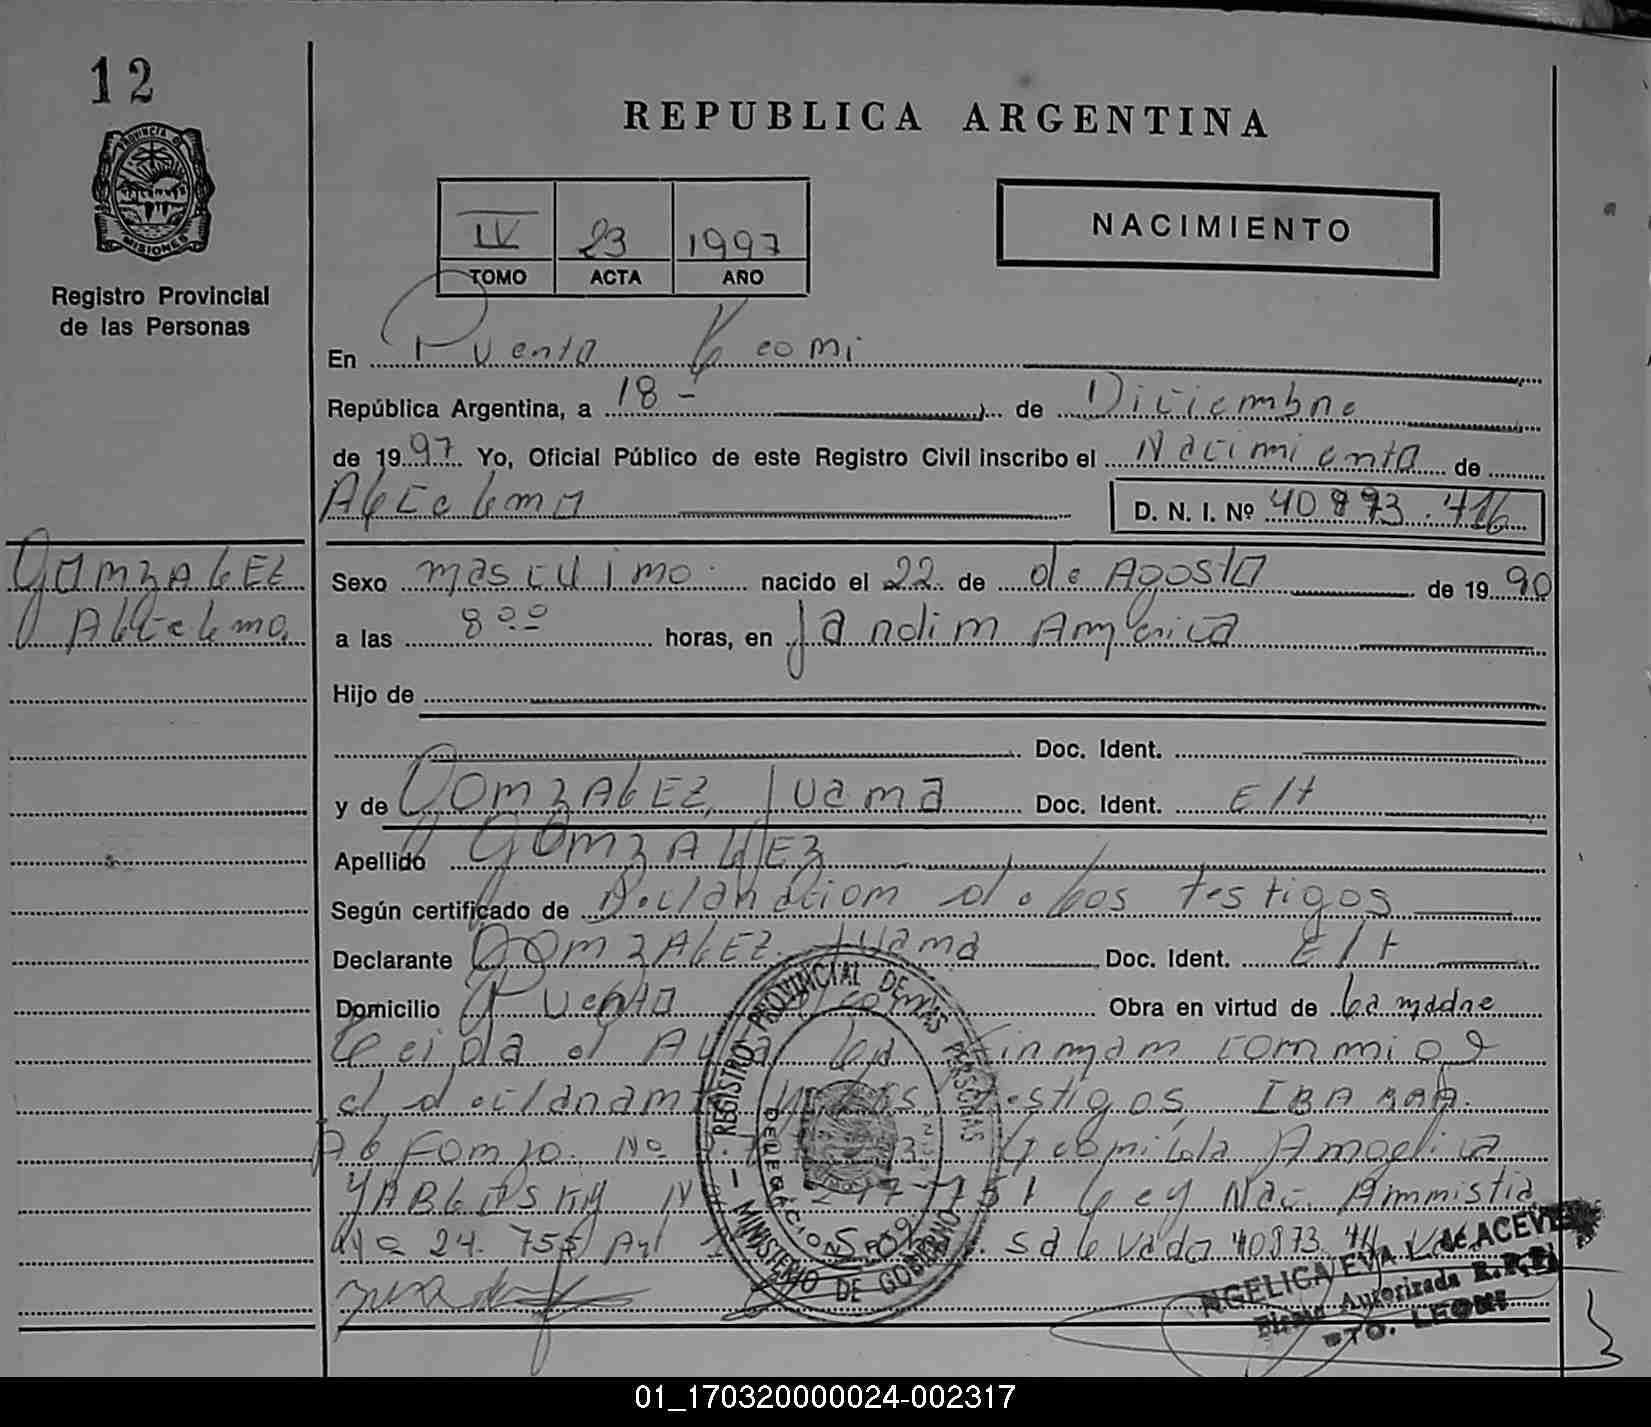 12
PROVINCIA DE
MISIONES
Registro Provincial
de las Personas
REPUBLICA ARGENTINA
IV 23 1997
TOMO ACTA AÑO
NACIMIENTO
En Puerto Leoni
República Argentina, a 18 - de Diciembre
de 1997 Yo, Oficial Público de este Registro Civil inscribo el Nacimiento de
D. N. I. Nº 40873.416
GONZALEZ
Sexo masculino nacido el 22 de de Agosto de 1990
a las 8 00 horas, en Jardim America
Hijo de
Doc. Ident.
y de GONZALEZ, Juana Doc. Ident. E/t
Apellido GONZALEZ
Según certificado de Declaracion de los testigos
Declarante GONZALEZ Juana Doc. Ident. E/t
Domicilio Puerto Leoni Obra en virtud de la madre
Leida el Acta la firman conmigo
el declarante y los testigos IBARRA
Alfonso Nº Leonilda Angelica
YABLOSKY Ley Nac. Amnistia
Nº 24.755 Art salvado 40873.41
REGISTRO PROVINCIAL DE LAS PERSONAS
DELEGACION
MINISTERIO DE GOBIERNO
ANGELICA EVA L. de ACEVEDO
Autorizada R.P.P.
PTO. LEONI
01_170320000024-002317